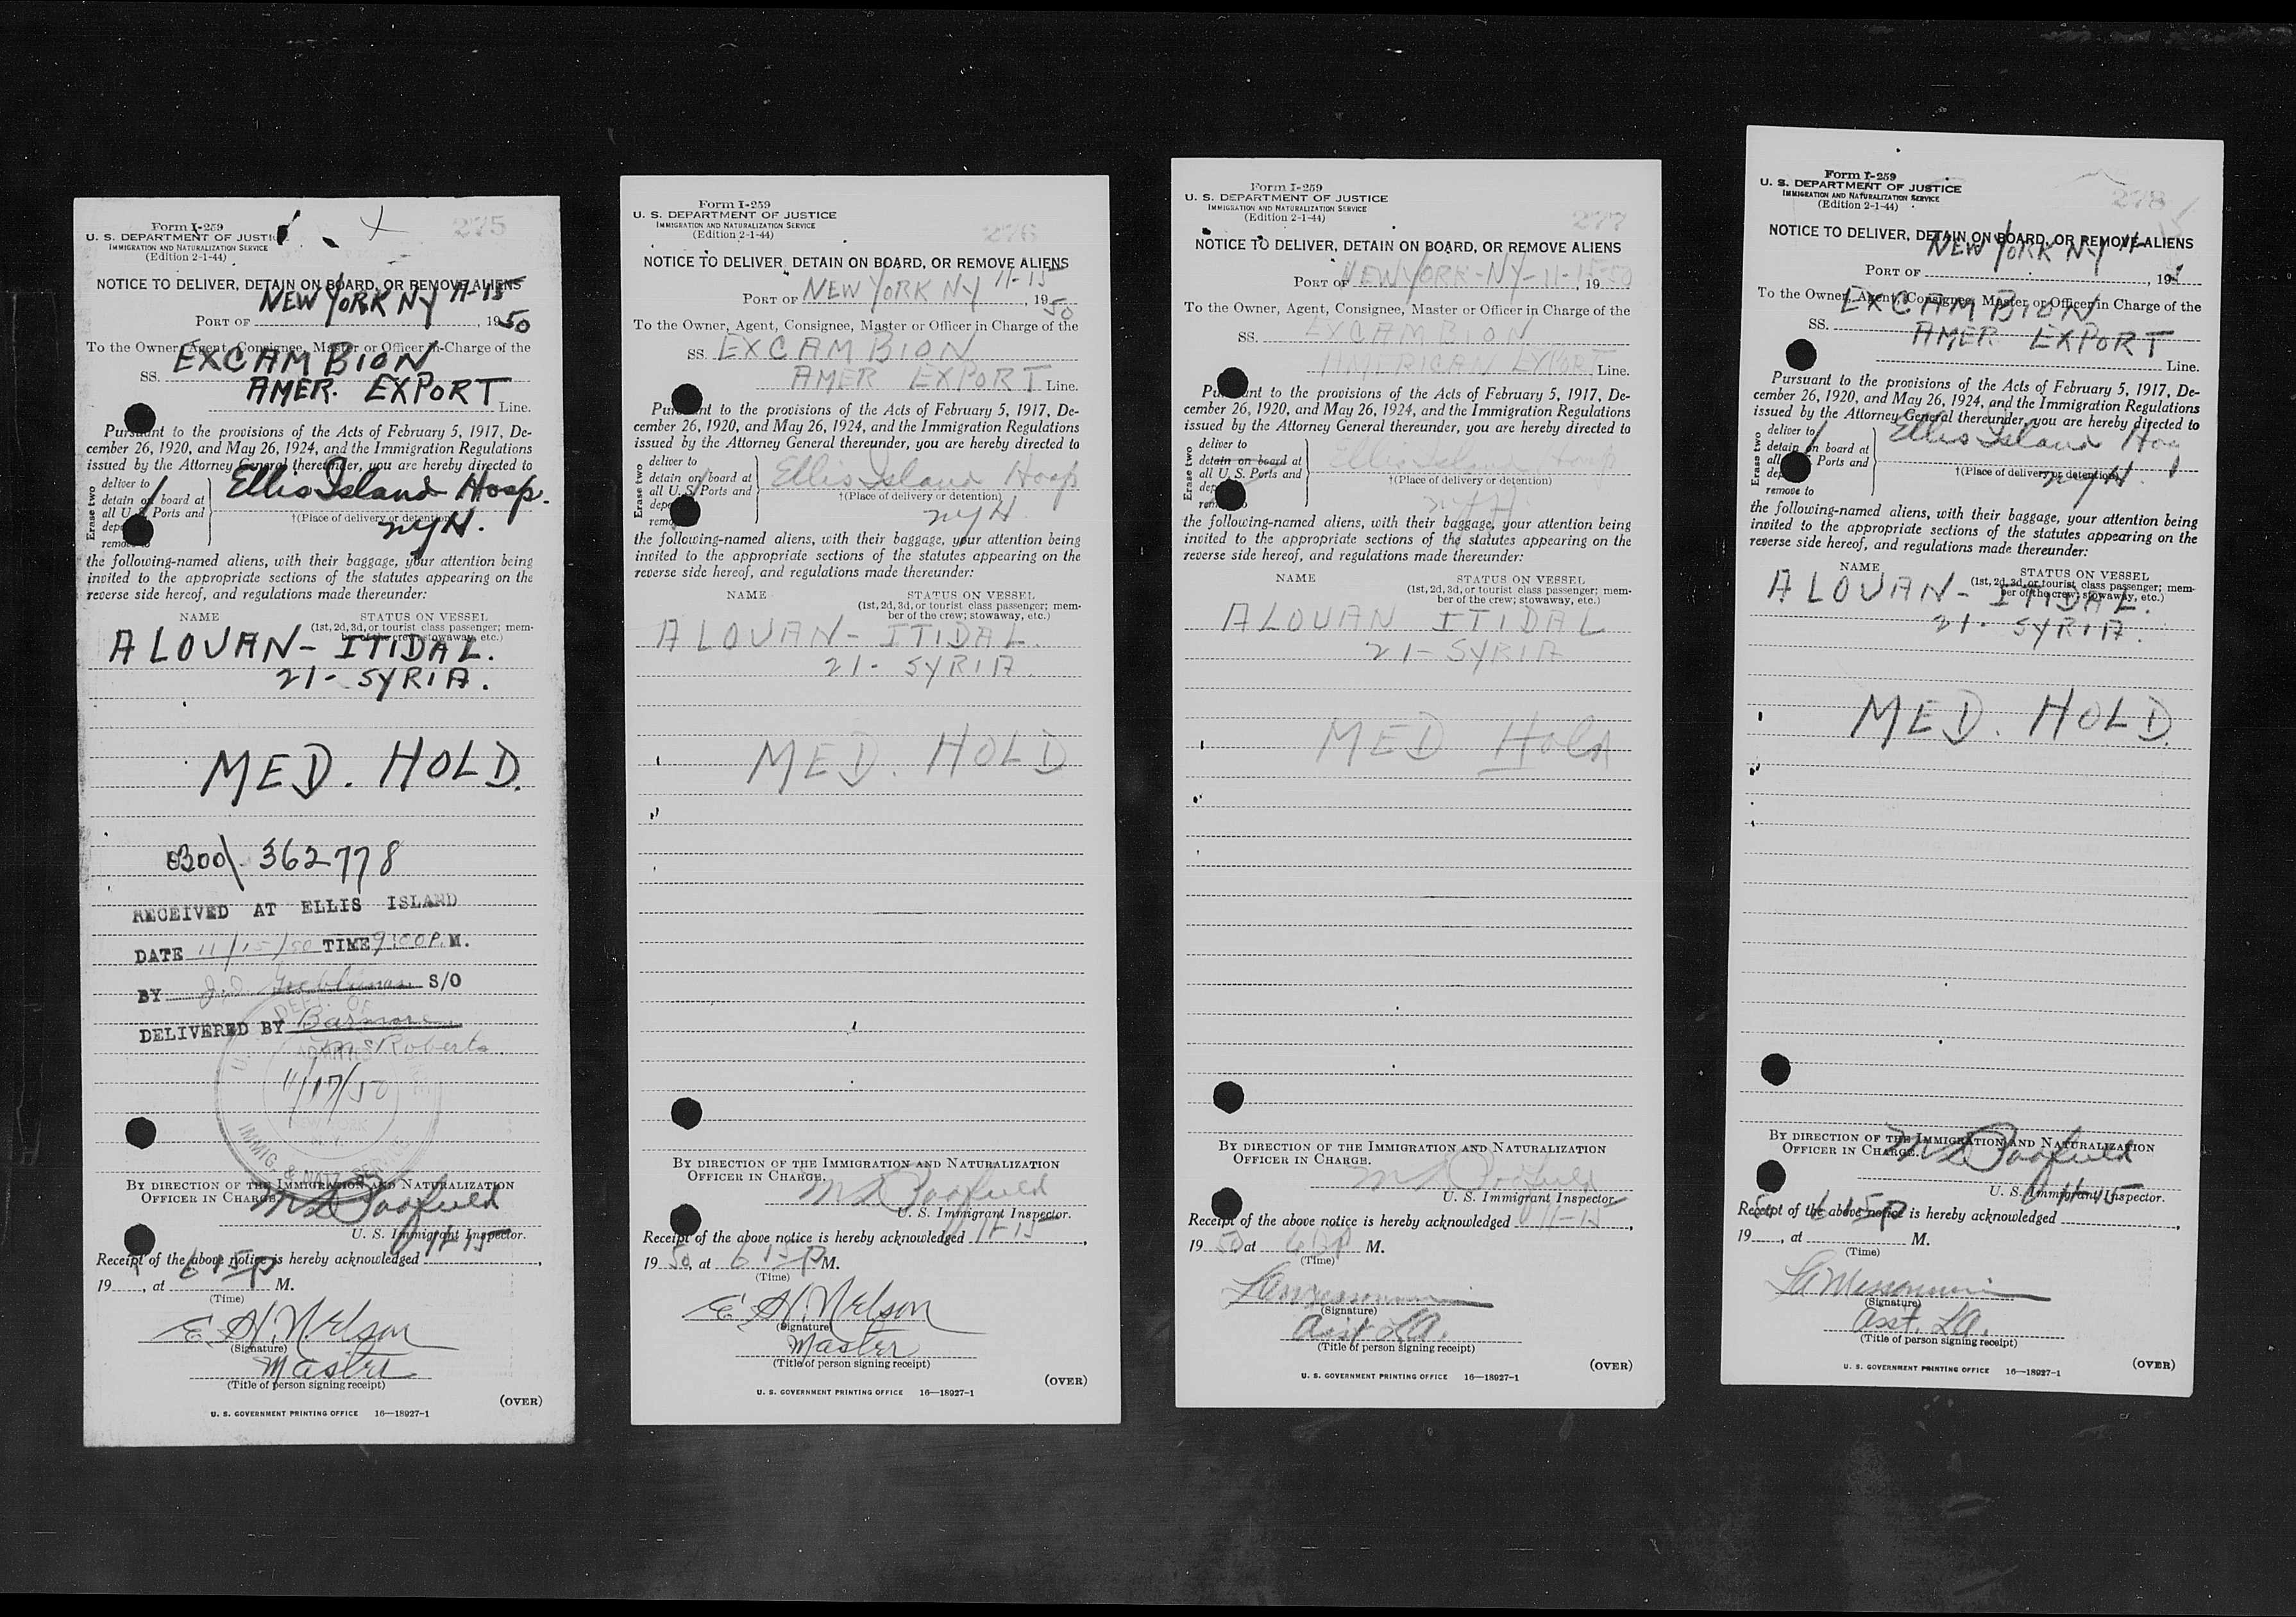 275
Form I-259
U. S. DEPARTMENT OF JUSTICE
IMMIGRATION AND NATURALIZATION SERVICE
(Edition 2-1-44)
NOTICE TO DELIVER, DETAIN ON BOARD, OR REMOVE ALIENS
PORT OF NEW YORK NY 11-15, 1950
To the Owner, Agent, Consignee, Master or Officer in Charge of the
SS. EXCAMBION
AMER. EXPORT Line.
Pursuant to the provisions of the Acts of February 5, 1917, De-
cember 26, 1920, and May 26, 1924, and the Immigration Regulations
issued by the Attorney General thereunder, you are hereby directed to
Erase two
deliver to
detain on board at
all U. S. Ports and
remove to
Ellis Island Hosp.
†(Place of delivery or detention)
NYH.
the following-named aliens, with their baggage, your attention being
invited to the appropriate sections of the statutes appearing on the
reverse side hereof, and regulations made thereunder:
NAME STATUS ON VESSEL
(1st, 2d, 3d, or tourist class passenger; mem-
ber of the crew; stowaway, etc.)
ALOUAN - ITIDAL.
21- SYRIA.
MED. HOLD.
0300\ 362778
RECEIVED AT ELLIS ISLAND
DATE 11/15/50 TIME 9:00 P. M.
BY S/O
DELIVERED BY
Roberts
11/17/50
NEW YORK
N. Y.
IMMIG. & NATZ. SERVICE
BY DIRECTION OF THE IMMIGRATION AND NATURALIZATION
OFFICER IN CHARGE.
U. S. Immigrant Inspector.
Receipt of the above notice is hereby acknowledged 11-15,
19, at 6 15 P M.
(Time)
E. H. Nelson
(Signature)
Master
(Title of person signing receipt)
(OVER)
U. S. GOVERNMENT PRINTING OFFICE 16—18927-1
276
Form I-259
U. S. DEPARTMENT OF JUSTICE
IMMIGRATION AND NATURALIZATION SERVICE
(Edition 2-1-44)
NOTICE TO DELIVER, DETAIN ON BOARD, OR REMOVE ALIENS
PORT OF NEW YORK NY 11-15, 1950
To the Owner, Agent, Consignee, Master or Officer in Charge of the
SS. EXCAMBION
AMER EXPORT Line.
Pursuant to the provisions of the Acts of February 5, 1917, De-
cember 26, 1920, and May 26, 1924, and the Immigration Regulations
issued by the Attorney General thereunder, you are hereby directed to
Erase two
deliver to
detain on board at
all U. S. Ports and
Ellis Island Hosp
†(Place of delivery or detention)
NYH.
the following-named aliens, with their baggage, your attention being
invited to the appropriate sections of the statutes appearing on the
reverse side hereof, and regulations made thereunder:
NAME STATUS ON VESSEL
(1st, 2d, 3d, or tourist class passenger; mem-
ber of the crew; stowaway, etc.)
ALOUAN - ITIDAL.
21- SYRIA.
MED. HOLD
BY DIRECTION OF THE IMMIGRATION AND NATURALIZATION
OFFICER IN CHARGE.
U. S. Immigrant Inspector.
Receipt of the above notice is hereby acknowledged 11-15,
1950, at 6 15 P M.
(Time)
E. H. Nelson
(Signature)
Master
(Title of person signing receipt)
(OVER)
U. S. GOVERNMENT PRINTING OFFICE 16—18927-1
277
Form I-259
U. S. DEPARTMENT OF JUSTICE
IMMIGRATION AND NATURALIZATION SERVICE
(Edition 2-1-44)
NOTICE TO DELIVER, DETAIN ON BOARD, OR REMOVE ALIENS
PORT OF NEW YORK-NY-11-15-50, 19
To the Owner, Agent, Consignee, Master or Officer in Charge of the
SS. EXCAMBION
AMERICAN EXPORT Line.
Pursuant to the provisions of the Acts of February 5, 1917, De-
cember 26, 1920, and May 26, 1924, and the Immigration Regulations
issued by the Attorney General thereunder, you are hereby directed to
Erase two
deliver to
detain on board at
all U. S. Ports and
Ellis Island Hosp
†(Place of delivery or detention)
NYH
the following-named aliens, with their baggage, your attention being
invited to the appropriate sections of the statutes appearing on the
reverse side hereof, and regulations made thereunder:
NAME STATUS ON VESSEL
(1st, 2d, 3d, or tourist class passenger; mem-
ber of the crew; stowaway, etc.)
ALOUAN ITIDAL
21- SYRIA
MED Hold
BY DIRECTION OF THE IMMIGRATION AND NATURALIZATION
OFFICER IN CHARGE.
U. S. Immigrant Inspector
Receipt of the above notice is hereby acknowledged 11-15,
1950 at M.
(Time)
(Signature)
Asst. LA.
(Title of person signing receipt)
(OVER)
U. S. GOVERNMENT PRINTING OFFICE 16—18927-1
278
Form I-259
U. S. DEPARTMENT OF JUSTICE
IMMIGRATION AND NATURALIZATION SERVICE
(Edition 2-1-44)
NOTICE TO DELIVER, DETAIN ON BOARD, OR REMOVE ALIENS
PORT OF NEW YORK NY 11-, 19
To the Owner, Agent, Consignee, Master or Officer in Charge of the
SS. EXCAMBION
AMER. EXPORT Line.
Pursuant to the provisions of the Acts of February 5, 1917, De-
cember 26, 1920, and May 26, 1924, and the Immigration Regulations
issued by the Attorney General thereunder, you are hereby directed to
Erase two
deliver to
detain on board at
all Ports and
remove to
Ellis Island Hos
†(Place of delivery or detention)
NYH.
the following-named aliens, with their baggage, your attention being
invited to the appropriate sections of the statutes appearing on the
reverse side hereof, and regulations made thereunder:
NAME STATUS ON VESSEL
(1st, 2d, 3d, or tourist class passenger; mem-
ber of the crew; stowaway, etc.)
ALOUAN - ITIDAL.
21- SYRIA.
MED. HOLD.
BY DIRECTION OF THE IMMIGRATION AND NATURALIZATION
OFFICER IN CHARGE.
U. S. Immigrant Inspector.
11-15
Receipt of the above notice is hereby acknowledged ,
50 6 15 P
19, at M.
(Time)
(Signature)
Asst. LA.
(Title of person signing receipt)
(OVER)
U. S. GOVERNMENT PRINTING OFFICE 16—18927-1